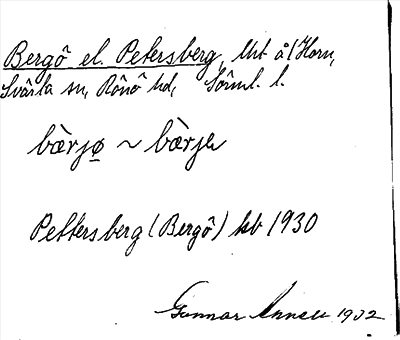 Bergö el. Petersberg, lht å (Horn,
Svärta sn, Rönö hd, Sörml. l.
bàrjø ~ bàrjø
Pettersberg (Bergö) hb 1930
Gunnar Annell 1932